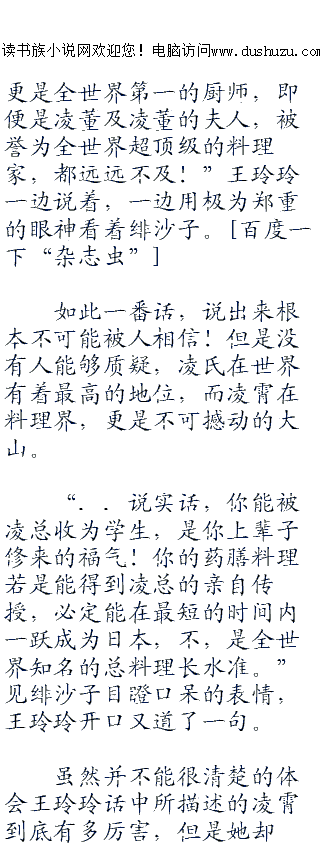 读书族小说网欢迎您！电脑访问www.dushuzu.com
更是全世界第一的厨师，即
便是凌董及凌董的夫人，被
誉为全世界超顶级的料理
家，都远远不及！”王玲玲
一边说着，一边用极为郑重
的眼神看着绯沙子。[百度一
下“杂志虫”]
如此一番话，说出来根
本不可能被人相信！但是没
有人能够质疑，凌氏在世界
有着最高的地位，而凌霄在
料理界，更是不可撼动的大
山。
“．．说实话，你能被
凌总收为学生，是你上辈子
修来的福气！你的药膳料理
若是能得到凌总的亲自传
授，必定能在最短的时间内
一跃成为日本，不，是全世
界知名的总料理长水准。”
见绯沙子目瞪口呆的表情，
王玲玲开口又道了一句。
虽然并不能很清楚的体
会王玲玲话中所描述的凌霄
到底有多厉害，但是她却